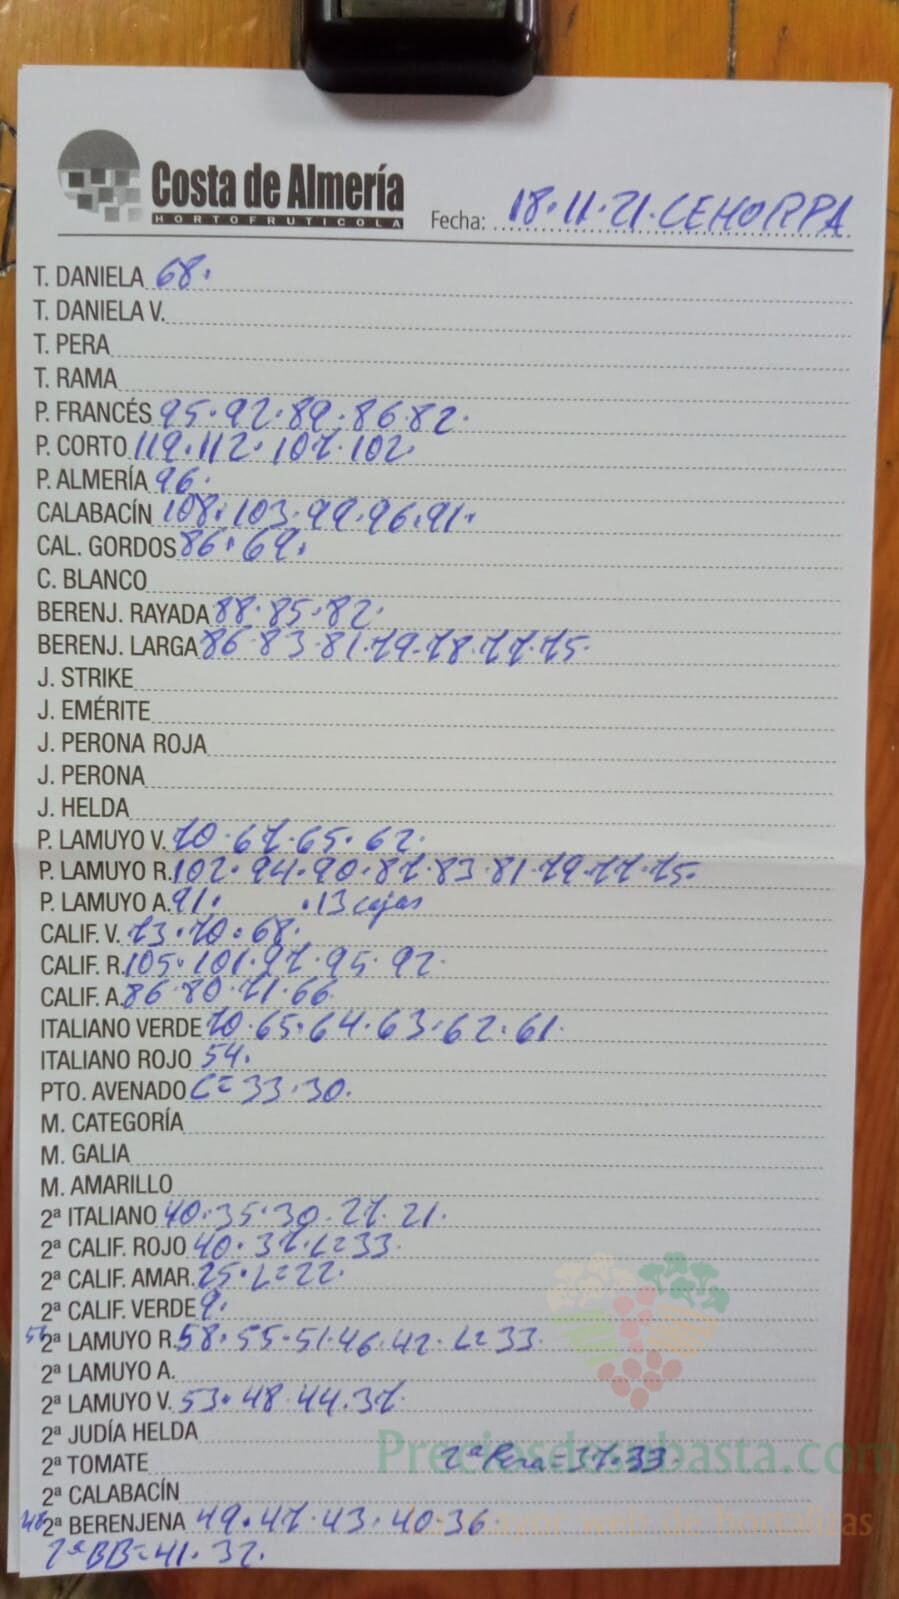 Costa de Almería
HORTOFRUTICOLA
Fecha: 18.11.21.CEHORPA
T. DANIELA 68.
T. DANIELA V.
T. PERA
T. RAMA
P. FRANCÉS 95.92.89.86.82.
P. CORTO 119.112.107.102.
P. ALMERÍA 96.
CALABACÍN 108.103.99.96.91.
CAL. GORDOS 86.69.
C. BLANCO
BERENJ. RAYADA 88.85.82.
BERENJ. LARGA 86.83.81.79.78.77.75.
J. STRIKE
J. EMÉRITE
J. PERONA ROJA
J. PERONA
J. HELDA
P. LAMUYO V. 70.67.65.62.
P. LAMUYO R. 102.94.90.87.83.81.79.77.75.
P. LAMUYO A. 91. .13 cajas
CALIF. V. 73.70.68.
CALIF. R. 105.101.97.95.92.
CALIF. A. 86.80.71.66.
ITALIANO VERDE 70.65.64.63.62.61.
ITALIANO ROJO 54.
PTO. AVENADO L=33.30.
M. CATEGORÍA
M. GALIA
M. AMARILLO
2ª ITALIANO 40.35.30.27.21.
2ª CALIF. ROJO 40.37.L=33.
2ª CALIF. AMAR. 25.L=22.
2ª CALIF. VERDE 9.
2ª LAMUYO R. 58.55.51.46.42.L=33.
2ª LAMUYO A.
2ª LAMUYO V. 53.48.44.37.
2ª JUDÍA HELDA
Preciosdesubasta.com
2ª TOMATE 2ª Pera=37.33.
2ª CALABACÍN
48 2ª BERENJENA 49.47.43.40.36.
La mayor web de hortalizas
2ª BB=41.32.